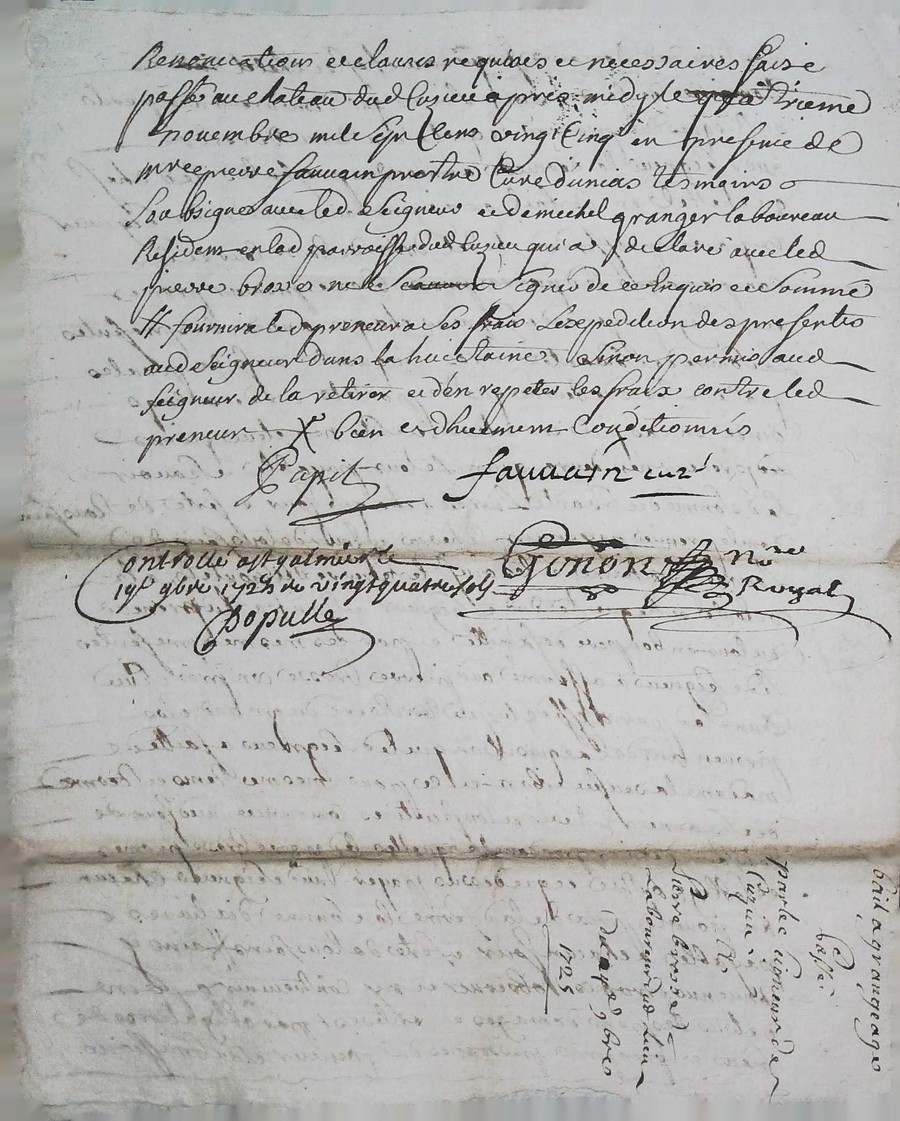 Renonciations et clauses requises et necessaires faict et
passé au chateau dud Cuzieu apres midy le quatrieme
novembre mil sept cens vingt cinq en presence de
mre pierre fauvain prestre Curé d'unias tesmoins
Soubsigné avec led Seigneur et de michel granger laboureau
Resident en lad parroisse dud Cuzieu qui a declaré avec led
pierre Signer de ce enquis et sommé
fournira led preneur a ses frais Lexpedition des presentes
aud Seigneur dans la huictaine Sinon permis aud
Seigneur de la retirer et d'en repeter les frais contre led
preneur X bien et dhuement Conditionnés
Papit fauvain curé
Controllé a st galmier le
19e 9bre 1725 vingt quatre sols
Gonon Nre
Royal
populle
bail a grangeage
passé
par le seigneur de
Cuzieu
a
pierre
Laboureur dud Lieu
Du 9bre
1725